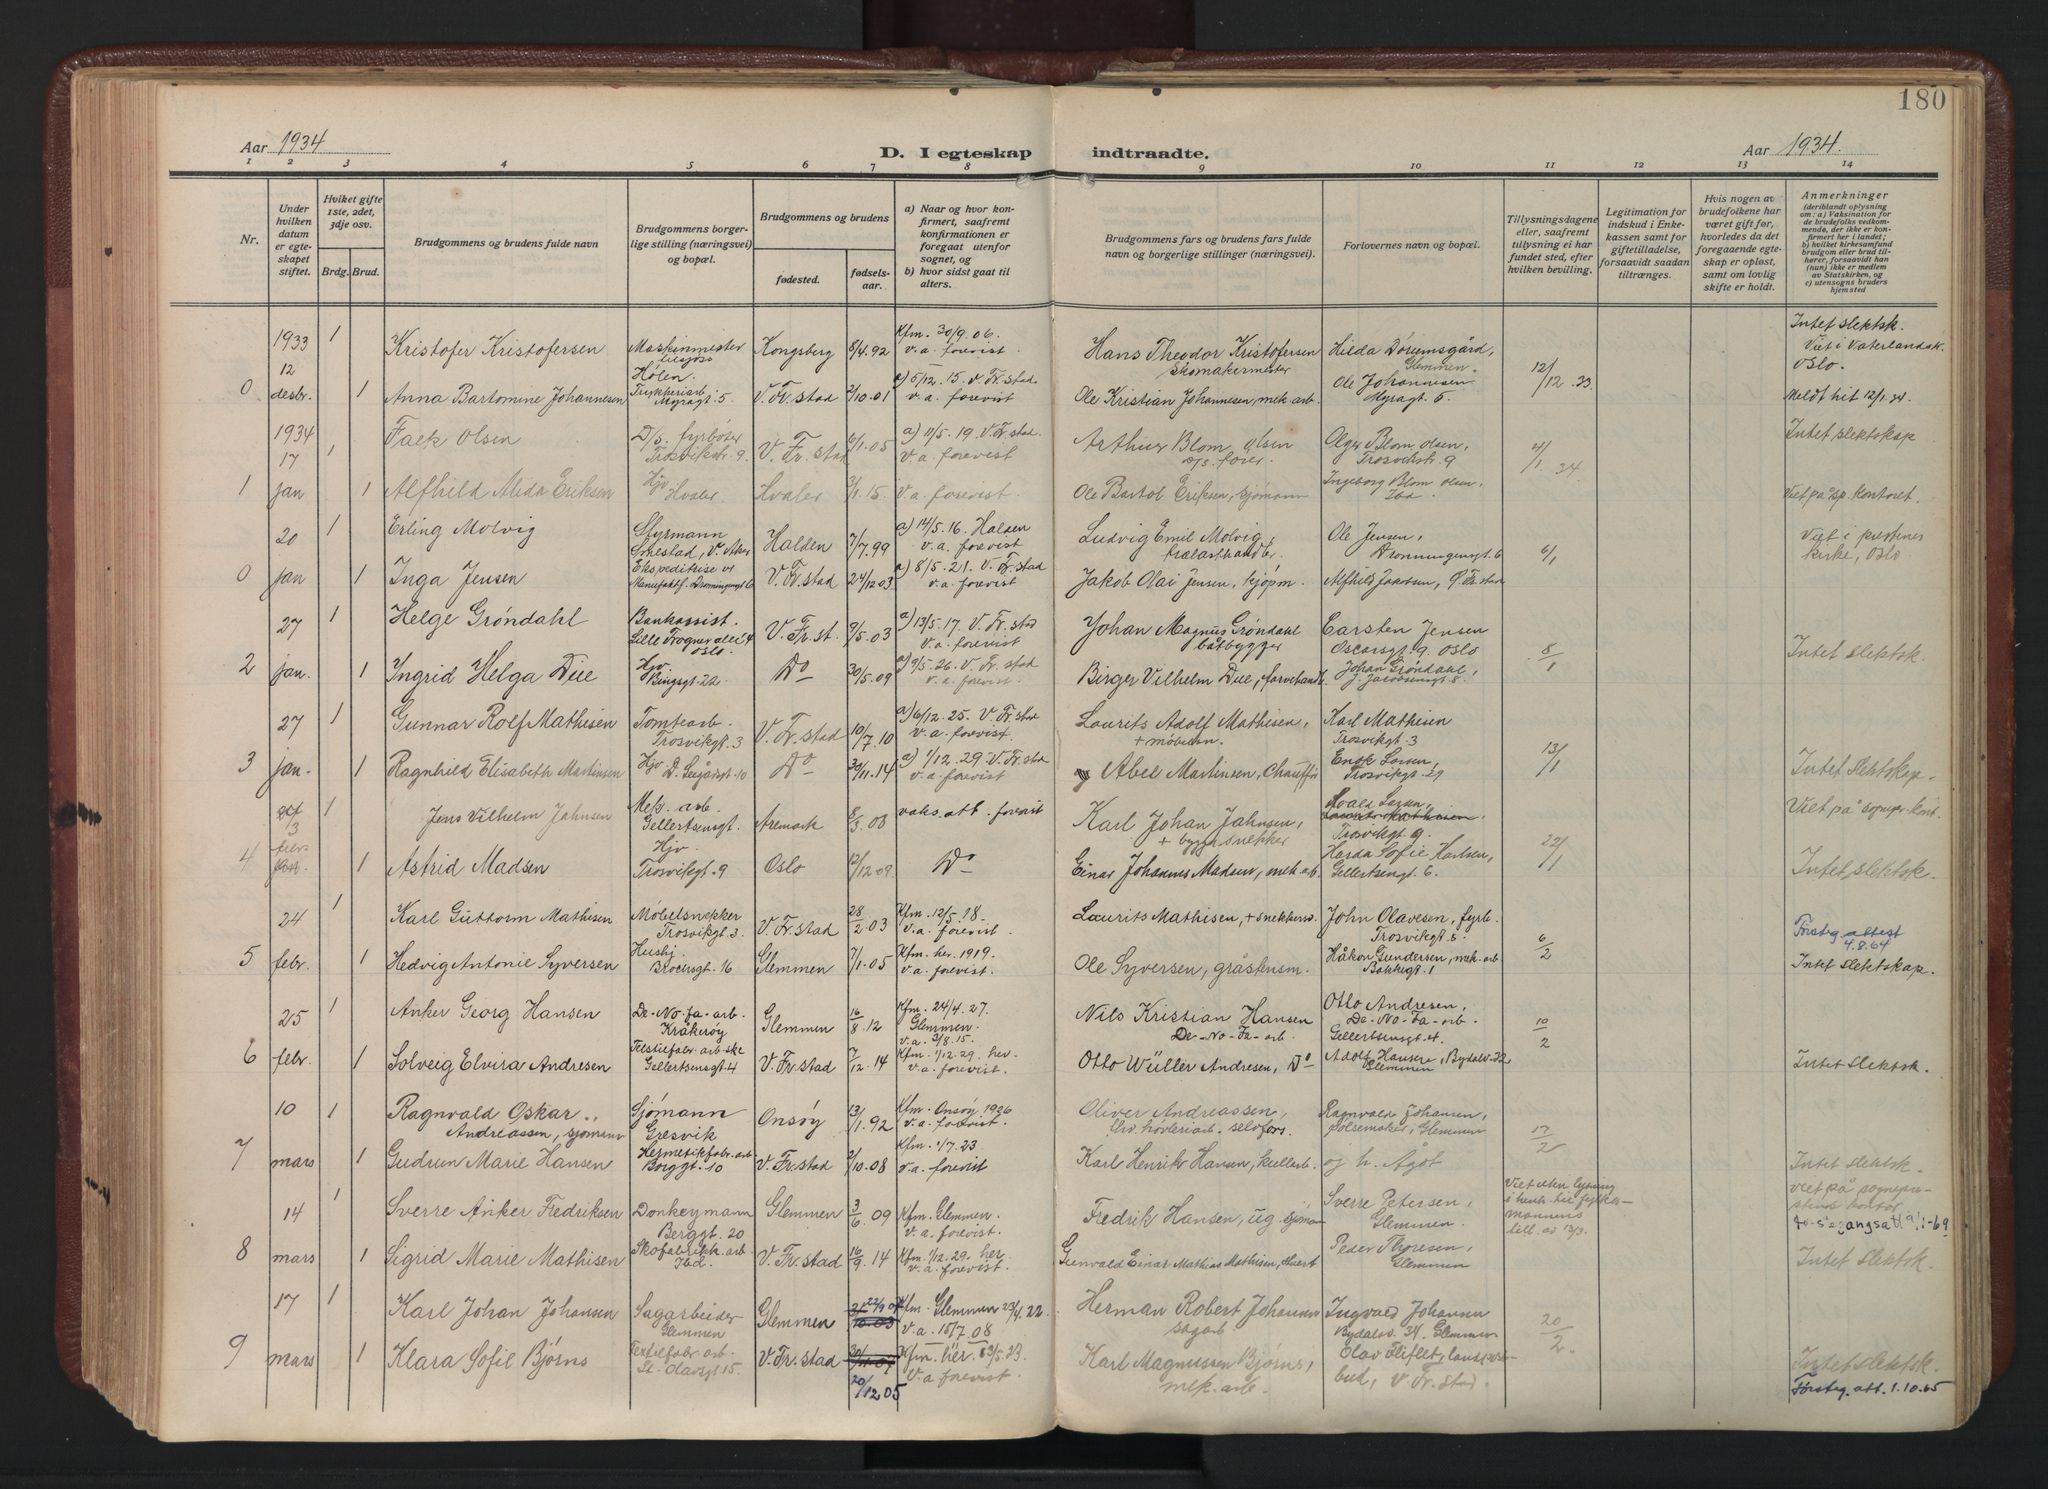 180
Aar 1934
D. I egteskap indtraadte.
Aar 1934.
1 2 3 4 5 6 7 8 9 10 11 12 13 14
Nr.
Under hvilken datum er egteskapet stiftet.
Hvilket gifte 1ste, 2det, 3dje osv.
Brdg. Brud.
Brudgommens og brudens fulde navn
Brudgommens borgerlige stilling (næringsvei) og bopæl.
Brudgommens og brudens
fødested.
fødselsaar.
a) Naar og hvor konfirmert, saafremt konfirmationen er foregaat utenfor sognet, og
b) hvor sidst gaat til alters.
Brudgommens fars og brudens fars fulde navn og borgerlige stillinger (næringsvei).
Forlovernes navn og bopæl.
Tillysningsdagene eller, saafremt tillysning ei har fundet sted, efter hvilken bevilling.
Legitimation for indskud i Enkekassen samt for giftetilladelse, forsaavidt saadan tiltrænges.
Hvis nogen av brudefolkene har været gift før, hvorledes da det foregaaende egteskap er opløst, samt om lovlig skifte er holdt.
Anmerkninger
(deriblandt oplysning om: a) Vaksination for de brudefolks vedkommende, der ikke er konfirmert her i landet; b) hvilket kirkesamfund brudgom eller brud tilhører, forsaavidt han (hun) ikke er medlem av Statskirken, og c) utensogns bruders hjemsted
1933 1 Kristofer Kristofersen Maskinmester Kongsberg 8/4.92 Kfm. 30/9.06. v.a. forevist Hans Theodor Kristofersen skomakermester Hilda Dørumsgård, Glemmen. 12/12.33 Intet slektsk. Viet i Vaterlandsk. Oslo.
0 12 desbr. 1 Anna Bartomine Johannesen Trykkeriarb Myragt. 5 V. Fr.stad 2/10.01 a) 5/12.15. V. Fr.stad. v.a. forevist Ole Kristian Johannesen, mek. arb. Ole Johannesen Myragt 5. Meldt hit 12/1.34.
1934 17 1 Falk Olsen D/s. fyrbøter Trosvikstr. 9 V. Fr. stad 6/1.05 a) 11/5.19. V. Fr.stad. v.a. forevist Arthur Blom Olsen Olger Blom Olsen, Trosvikstr. 9 1.34 Intet slektskap
1 jan 1 Alfhild Alida Eriksen Hjv. Hvaler Hvaler 1.15. v.a. forevist Ole Bartol Eriksen, sjømann Ingeborg Blom Olsen, Ibd. Viet på sp. kontoret.
20 1 Erling Molvig Styrmann Smestad, V. Aker Halden 7/7.99 a) 14/5.16. Halden v.a. forevist Ludvig Emil Molvig, trælasthandl. Ole Jensen, Dronningensgt 6 6/1 Viet i kirke, Oslo
0 jan 1 Inga Jensen Ekspeditrise v/ Manufaktf. Dronningensgt 6 V. Fr.stad 24/12.03 a) 8/5.21. V. Fr.stad v.a. forevist Jakob Olai Jensen, kjøpm. Alfhild Jakobsen, Fr.stad
27 1 Helge Grøndahl Bankassist. Lille Frogner alle 4 Oslo V. Fr.st. 9/5.03 a) 13/5.17. V. Fr.stad v.a. forevist Johan Magnus Grøndahl båtbygger Carsten Jensen Oscarsgt. 9. Oslo 8/1
2 jan. 1 Ingrid Helga Due Hjv. Bingsgt. 22 Do 30/5.09 a) 9/5.26. V. Fr.stad v.a. forevist Birger Vilhelm Due, farvehandl. Johan Grøndahl J. Jacobsensgt 8. Intet slektsk.
27 1 Gunnar Rolf Mathisen Tomtearb. Trosvikgt. 3 V. Fr.stad 10/7.10 a) 6/12.25. V. Fr.stad v.a. forevist Laurits Adolf Mathisen, + møbelsn. Karl Mathisen Trosvikgt. 3 13/1
3 jan. 1 Ragnhild Elisabeth Martinsen Hjv. 30/11.14 Do a) 1/12.29. V. Fr.stad v.a. forevist Abel Martinsen, Chauffør Enok Larsen, Trosvikgt. 29 Intet slektskap.
3 1 Jens Vilhelm Jahnsen Mek. arb. Gellertsensgt. Aremark 8/3.08 vaks. att. forevist Karl Johan Jahnsen, + bygg. snekker Larsen, Trosvikgt. 9. 22/1 Viet på kont.
4 febr. 1 Astrid Madsen Hjv. Trosvikgt. 9 Oslo 12/12.09. Do Einar Johannes Madsen, mek. arb. Harda Sofie Karlsen, Gellertsensgt. 6. Intet slektsk.
24 1 Karl Guttorm Mathisen Møbelsnekker Trosvikgt. 3 V. Fr.stad 28/2.03 Kfm. 12/5.18. v.a. forevist Laurits Mathisen, + snekkersv. John Olavesen, fyrb. Trosvikgt. 5. 6/2 Førsteg. attest 4.8.64
5 febr. 1 Hedvig Antonie Syversen Hushj. Brochsgt. 16 Glemmen 7/1.05 Kfm. her. 1919. v.a. forevist. Ole Syversen, gråstensm. Håkon Gundersen, mek. arb. Bakkegt. 1 Intet slektskap.
25 1 Anker Georg Hansen De-No-Fa-arb. Kråkerøy Glemmen 16/8.12 Kfm. 24/4.27. Glemmen. v.a. 3/8.15. Nils Kristian Hansen De-No-Fa-arb. Otto Andresen, De-No-Fa-arb. Gellertsensgt. 4. 10/2
6 febr. 1 Solveig Elvira Andresen Gellertsensgt. 4 V. Fr.stad 7/12.14 Kfm. 1/12.29. her. v.a. forevist. Otto Wüller Andresen, Do Adolf Hansen, Bydalsv. 22 Glemmen Intet slektsk.
10 1 Ragnvald Oskar Andreassen, sjømann Sjømann Gresvik Onsøy 13/1.92 Kfm. Onsøy 1926 v.a. forevist. Oliver Andreassen, høvleriarb. selvfors. Ragnvald Johansen, pølsemaker, Glemmen 17/2
7 mars 1 Gudrun Marie Hansen Hermetikfabr. arb Borggt. 10 V. Fr.stad 2/10.08 Kfm. 1/7.23 v.a. forevist Karl Henrik Hansen, kullerb. og h. Ågot Intet slektsk.
14 1 Sverre Anker Fredriksen Donkeymann Berggt. 20 Glemmen 3/6.09 Kfm. Glemmen. v.a. forevist. Fredrik Hansen, ug. sjømann Sverre Petersen, Glemmen. Viet uten lysning i henh. til fylkesmannens till. av 13/3. viet på sogneprestens kontor
8 mars 1 Sigrid Marie Mathisen Skofabrikk. arb. Ibd. V. Fr.stad 16/9.14 Kfm. 1/12.29. her. v.a. forevist. Gunvald Einar Mathias Mathisen, stuert Peder Thoresen, Glemmen Intet slektsk.
17 1 Karl Johan Johansen Sagarbeider Glemmen Glemmen Kfm. Glemmen 23/4.22. v.a. 15/7.08 Herman Robert Johansen sagarb. Ingvald Johansen Bydalsv. 34. Glemmen 20/2.
9 mars 1 Klara Sofie Bjørns Textilfabr. arb. St. Olavsgt 15. V. Fr.stad 20/12 05 Kfm. her. 13/5.23. v.a. forevist. Karl Magnussen Bjørns, mek. arb. Olav Fliflet, landpostbud, V. Fr.stad. Intet slektsk. Førsteg. att. 1.10.65